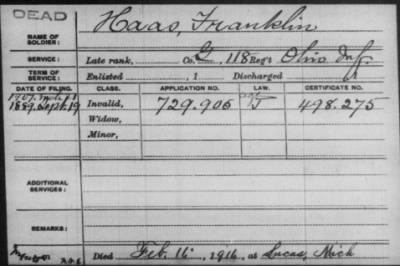 DEAD
NAME OF SOLDIER: Haas, Franklin
SERVICE: Late rank, Co. G, 118 Reg't Ohio Inf.
TERM OF SERVICE: Enlisted , 1 Discharged
DATE OF FILING. CLASS. APPLICATION NO. LAW. CERTIFICATE NO.
1889. Sept. 19 Invalid, 729.906 498.275
Widow,
Minor,
ADDITIONAL SERVICES:
REMARKS:
Died Feb. 16, 1916, at Lucas, Mich